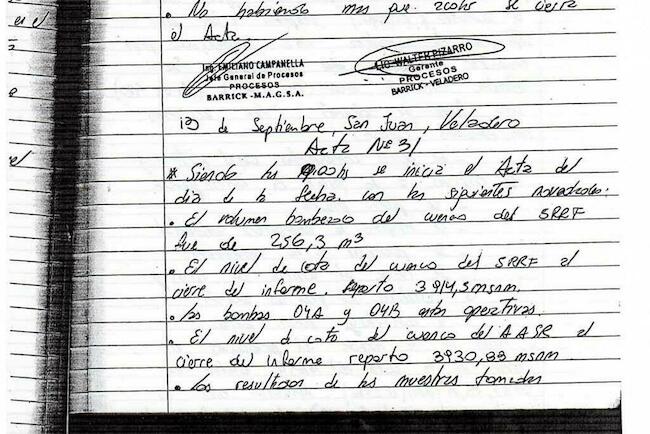 . No habiendo mas que se cierra
el Acta.
Ing. EMILIANO CAMPANELLA
Jefe General de Procesos
PROCESOS
BARRICK - M.A.G.S.A.
LIC. WALTER PIZARRO
Gerente
PROCESOS
BARRICK - VELADERO
13 de Septiembre, San Juan, Veladero
Acta Nº 31
* Siendo las se inicia el Acta del
dia de la fecha con las siguientes novedades:
. El volumen bombeado del cuenco del SRRF
fue de 256,3 m³
. El nivel de cota del cuenco del SRRF al
cierre del informe. reporto 3914,5 msnm.
. Las bombas 04A y 04B estan operativas.
. El nivel de cota del cuenco del AASR al
cierre del informe reporto 3930,88 msnm
. Los resultados de las muestras tomadas